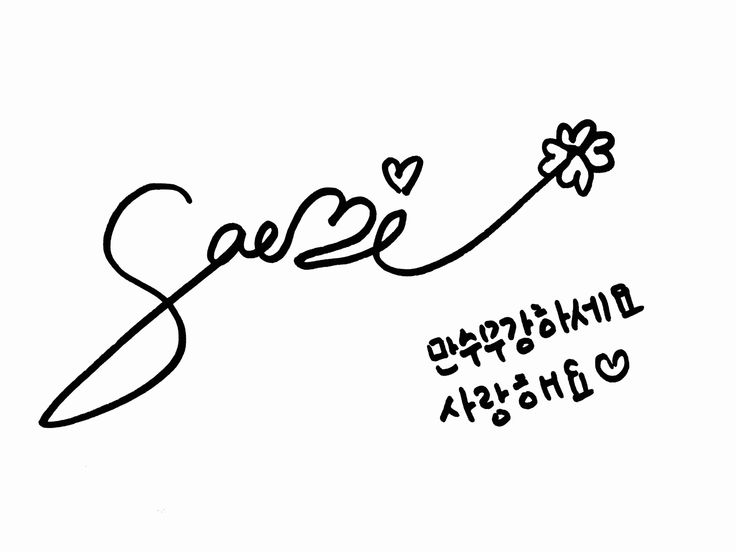 Saemi
만수무강하세요
사랑해요♡